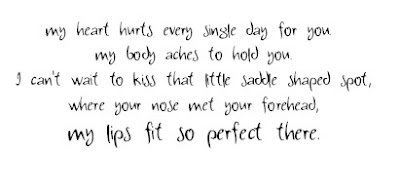 my heart hurts every single day for you.
my body aches to hold you.
I can't wait to kiss that little saddle shaped spot,
where your nose met your forehead,
my lips fit so perfect there.